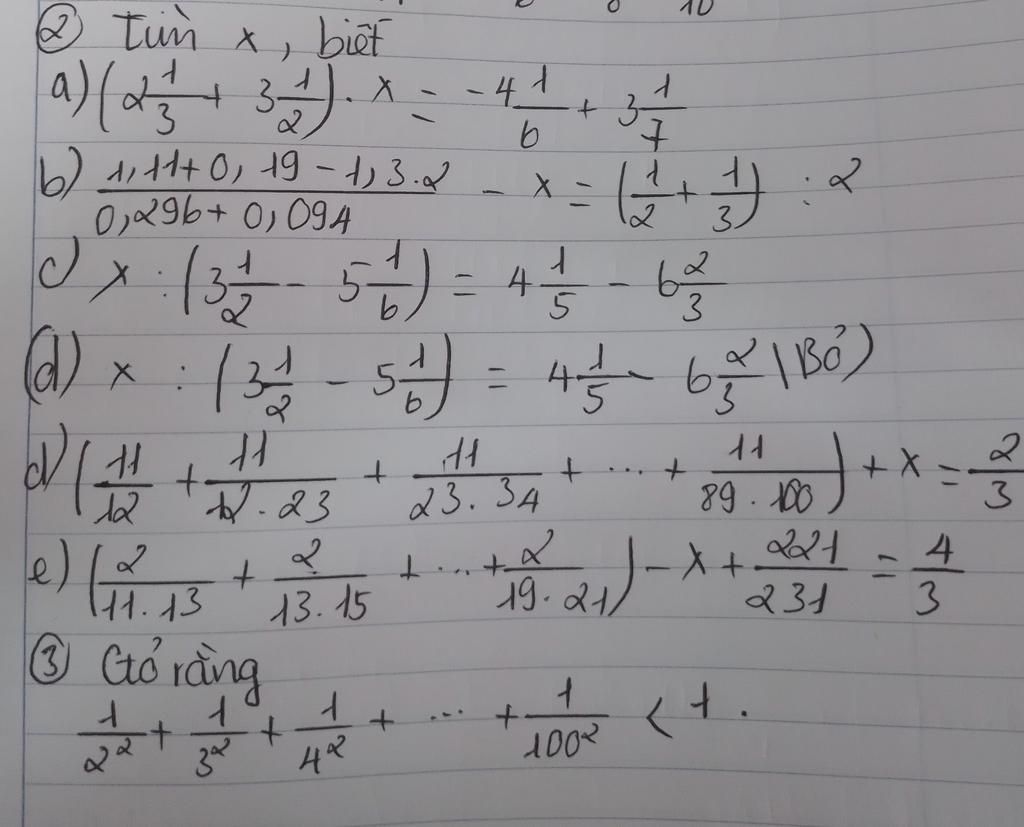 ② Tìm x, biết
a) (2 1/3 + 3 1/2) . x = -4 1/6 + 3 1/7
b) (1,11 + 0,19 - 1,3.2)/(0,296 + 0,094) - x = (1/2 + 1/3) : 2
c) x : (3 1/2 - 5 1/6) = 4 1/5 - 6 2/3
(d) x : (3 1/2 - 5 1/6) = 4 1/5 - 6 2/3 (Bỏ)
d) (11/12 + 11/(12.23) + 11/(23.34) + ... + 11/(89.100)) + x = 2/3
e) (2/(11.13) + 2/(13.15) + ... + 2/(19.21)) - x + 221/231 = 4/3
③ Ctỏ rằng
1/2² + 1/3² + 1/4² + ... + 1/100² < 1.